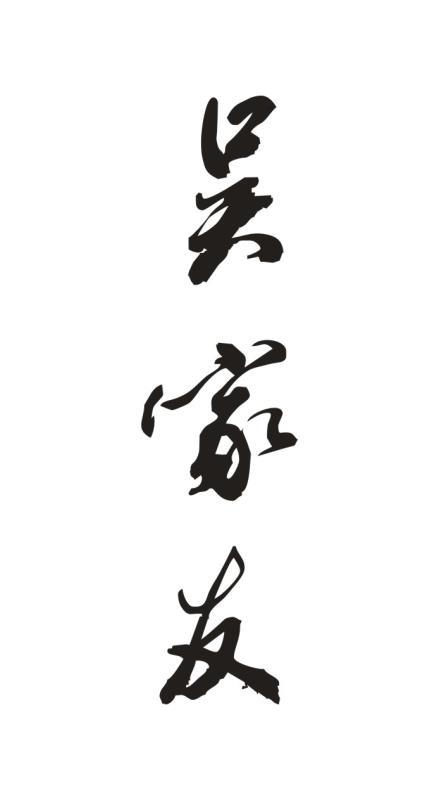 吴家友